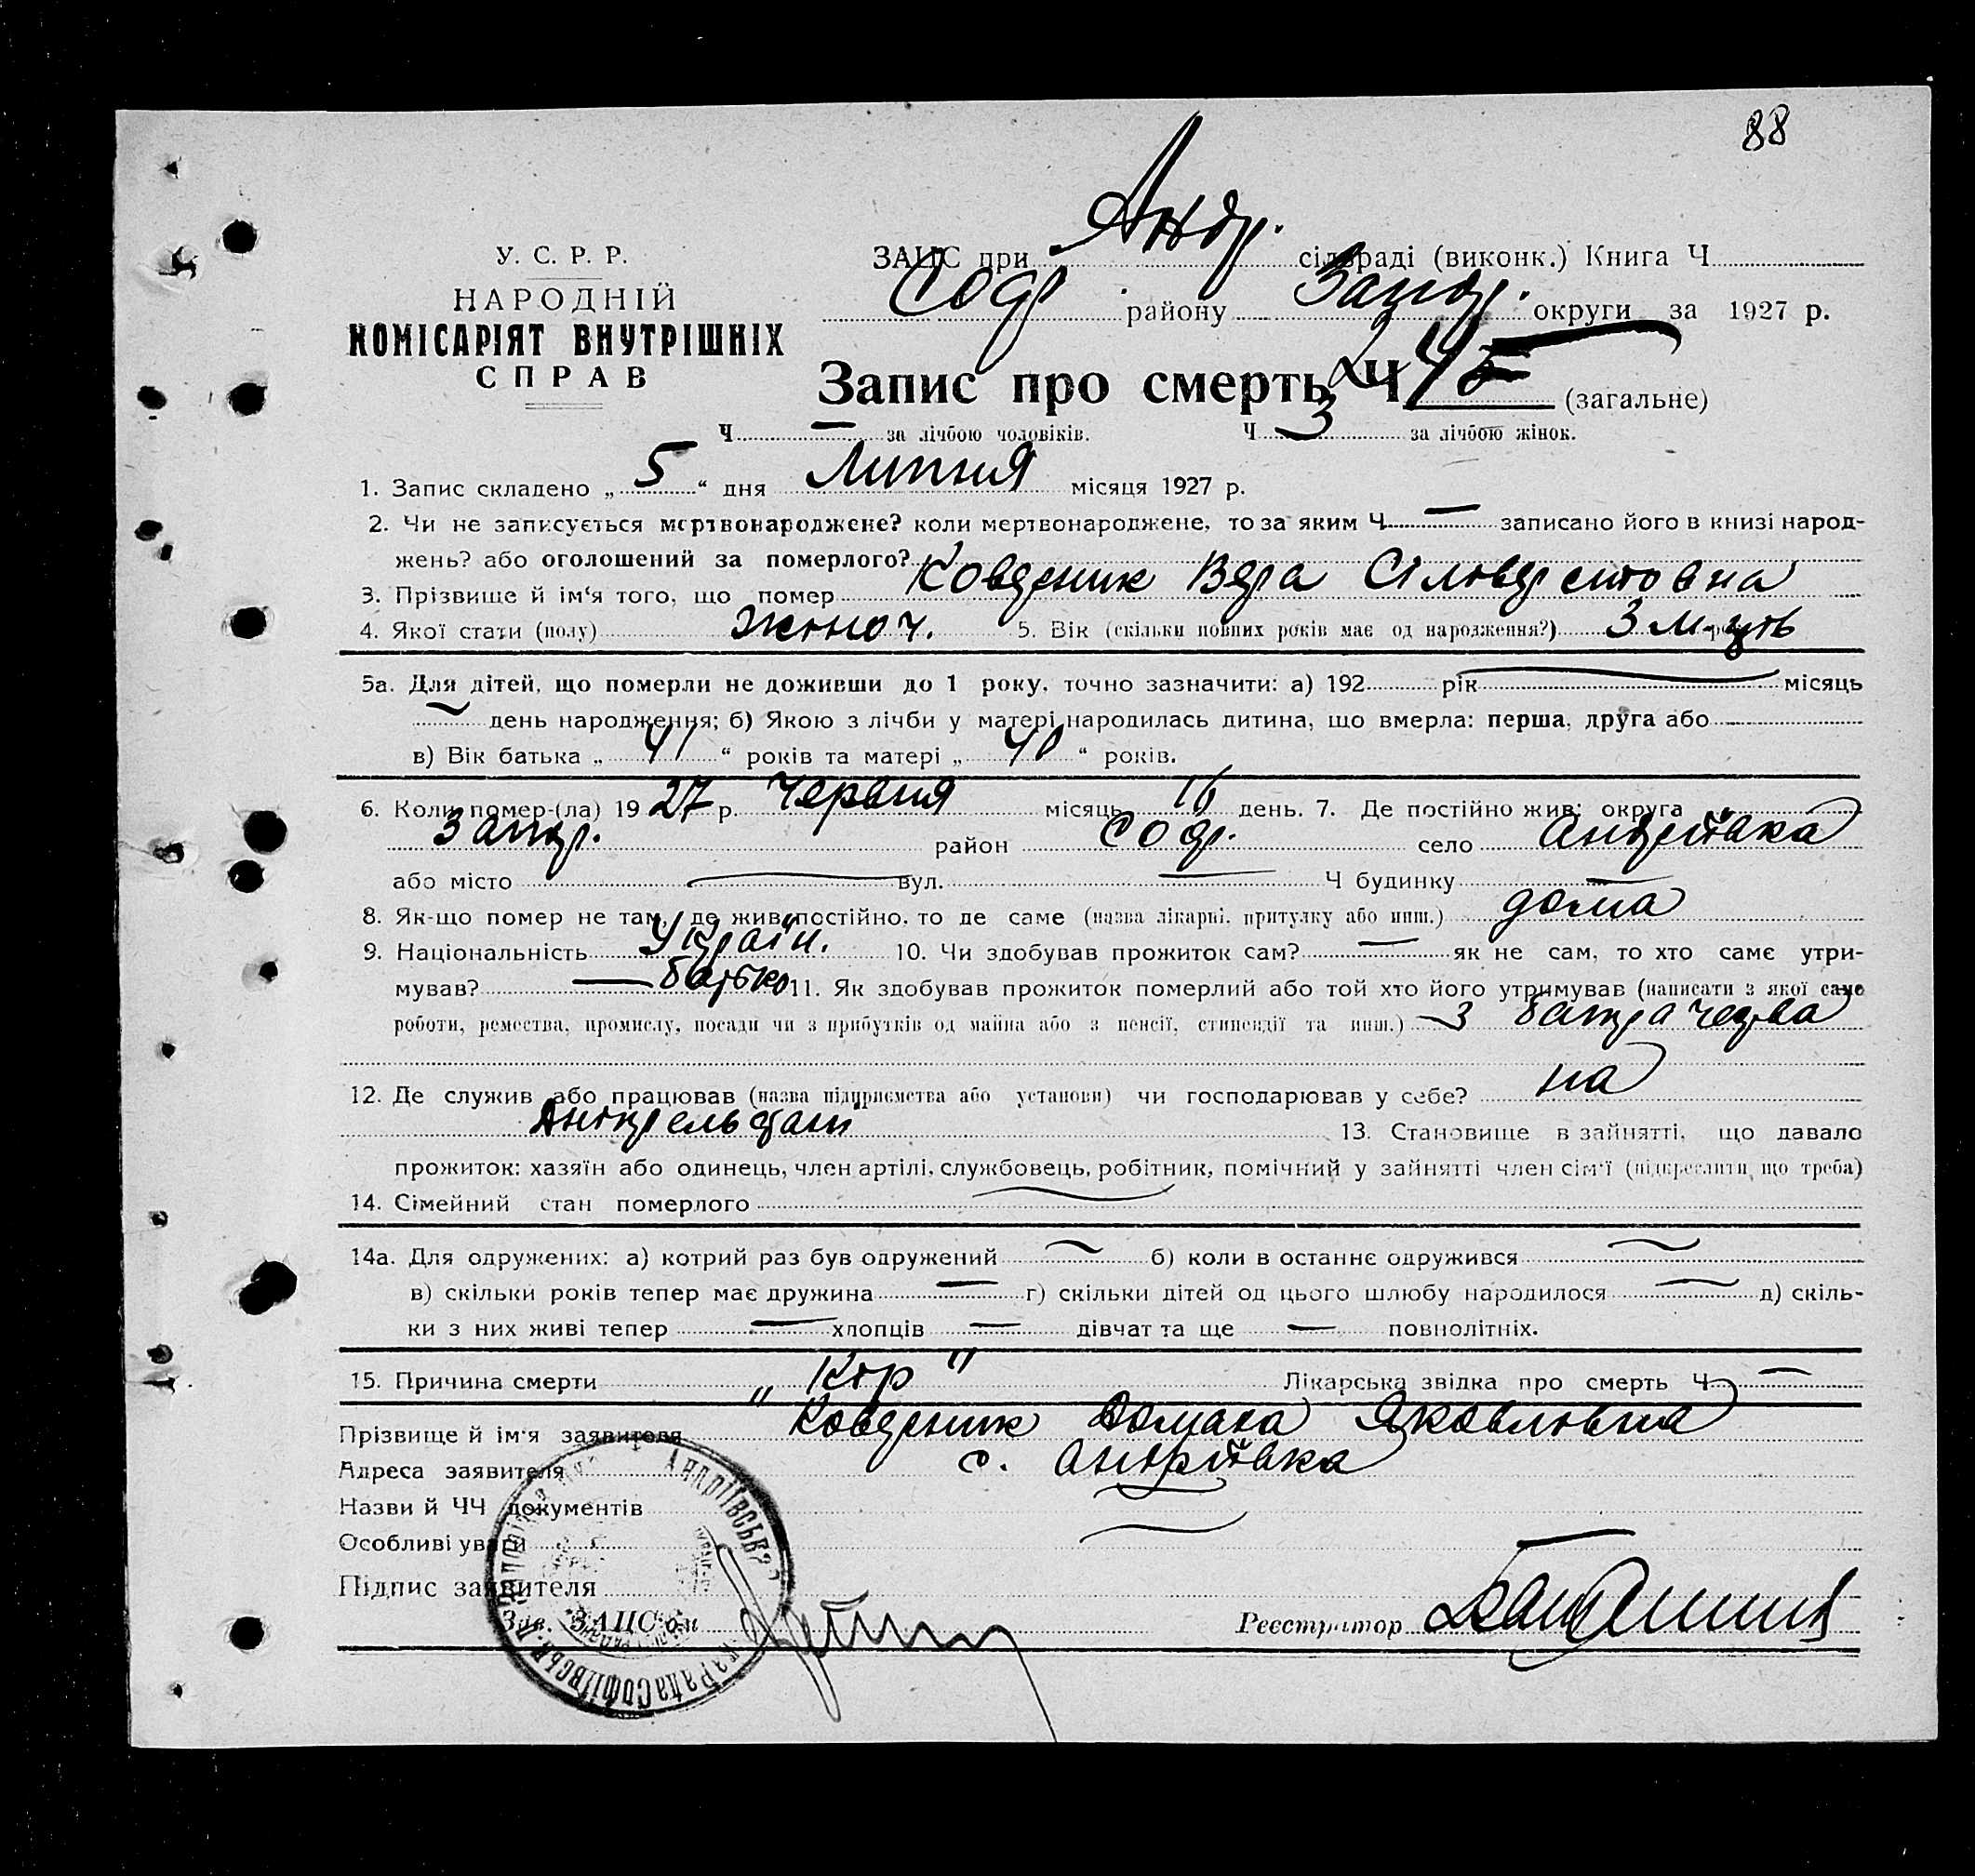 88
У. С. Р. Р.
НАРОДНІЙ
КОМІСАРІЯТ ВНУТРІШНІХ
СПРАВ
ЗАЦС при Андр. сільраді (виконк.) Книга Ч
Соф району Запор. округи за 1927 р.
Запис про смерть Ч (загальне)
Ч — за лічбою чоловіків. Ч 3 за лічбою жінок.
1. Запис складено „ 5 “ дня Липня місяця 1927 р.
2. Чи не записується мертвонароджене? коли мертвонароджене, то за яким Ч — записано його в книзі народ-
жень? або оголошений за померлого?
3. Прізвище й ім‘я того, що помер Ковдреник Вера
4. Якої стати (полу) жіноч. 5. Вік (скільки повних років має од народження?) 3
5а. Для дітей, що померли не доживши до 1 року, точно зазначити: а) 192 рік — місяць
день народження; б) Якою з лічби у матері народилась дитина, що вмерла: перша, друга або
в) Вік батька „ 41 “ років та матері „ 40 “ років.
6. Коли помер-(ла) 1927 р. Червня місяць 16 день. 7. Де постійно жив: округа
Запор. район Соф. село Андріївка
або місто — вул. — Ч будинку —
8. Як-що помер не там, де жив постійно, то де саме (назва лікарні, притулку або инш.) дома
9. Національність Україн. 10. Чи здобував прожиток сам? — як не сам, то хто саме утри-
мував? — батько 11. Як здобував прожиток померлий або той хто його утримував (написати з якої саме
роботи, ремества, промислу, посади чи з прибутків од майна або з пенсії, стипендії та инш.) з батрачества
12. Де служив або працював (назва підприємства або установи) чи господарював у себе? на
13. Становище в зайнятті, що давало
прожиток: хазяїн або одинець, член артілі, службовець, робітник, помічний у зайнятті член сім‘ї (підкреслити що треба)
14. Сімейний стан померлого —
14а. Для одружених: а) котрий раз був одружений — б) коли в останнє одружився —
в) скільки років тепер має дружина — г) скільки дітей од цього шлюбу народилося — д) скіль-
ки з них живі тепер — хлопців — дівчат та ще — повнолітніх.
15. Причина смерти „Кір“ Лікарська звідка про смерть Ч —
Прізвище й ім‘я заявителя Ковдреник Домаха Яковлевна
Адреса заявителя с. Андріївка
Назви й ЧЧ документів
Особливі уваги
Підпис заявителя
Зав. ЗАЦС‘ом Реєстратор